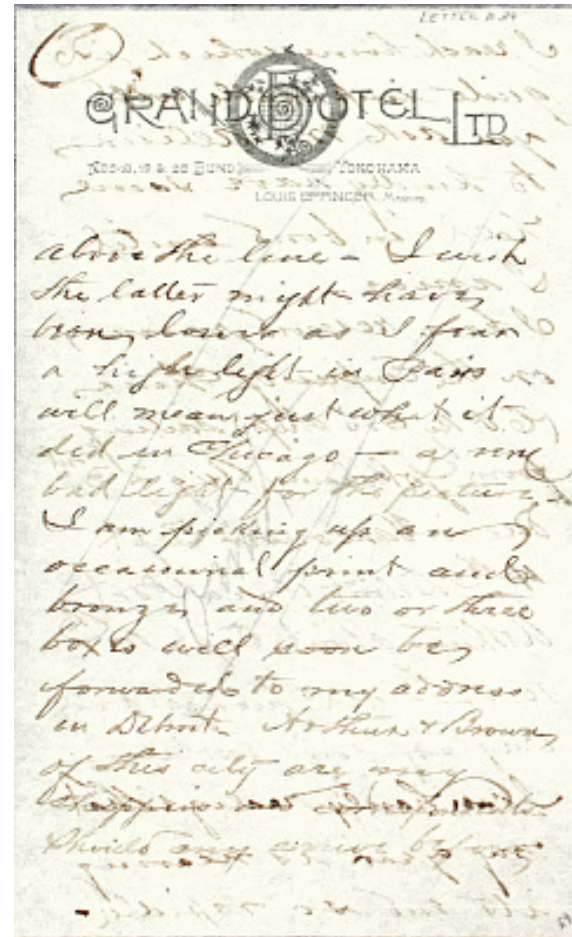 LETTER B 29
GRAND HOTEL LTD
NOS 18, 19 & 20 BUND YOKOHAMA
LOUIS EPPINGER, MANAGER
above the line – I wish
the latter might have
been lower as I fear
a high light in Paris
will mean just what it
did in Chicago – a very
bad light for the picture.
I am picking up an
occasional print and
bronze and two or three
boxes will soon be
forwarded to my address
in Detroit. Arthur & Brown
of this city are my
Should any arrive before